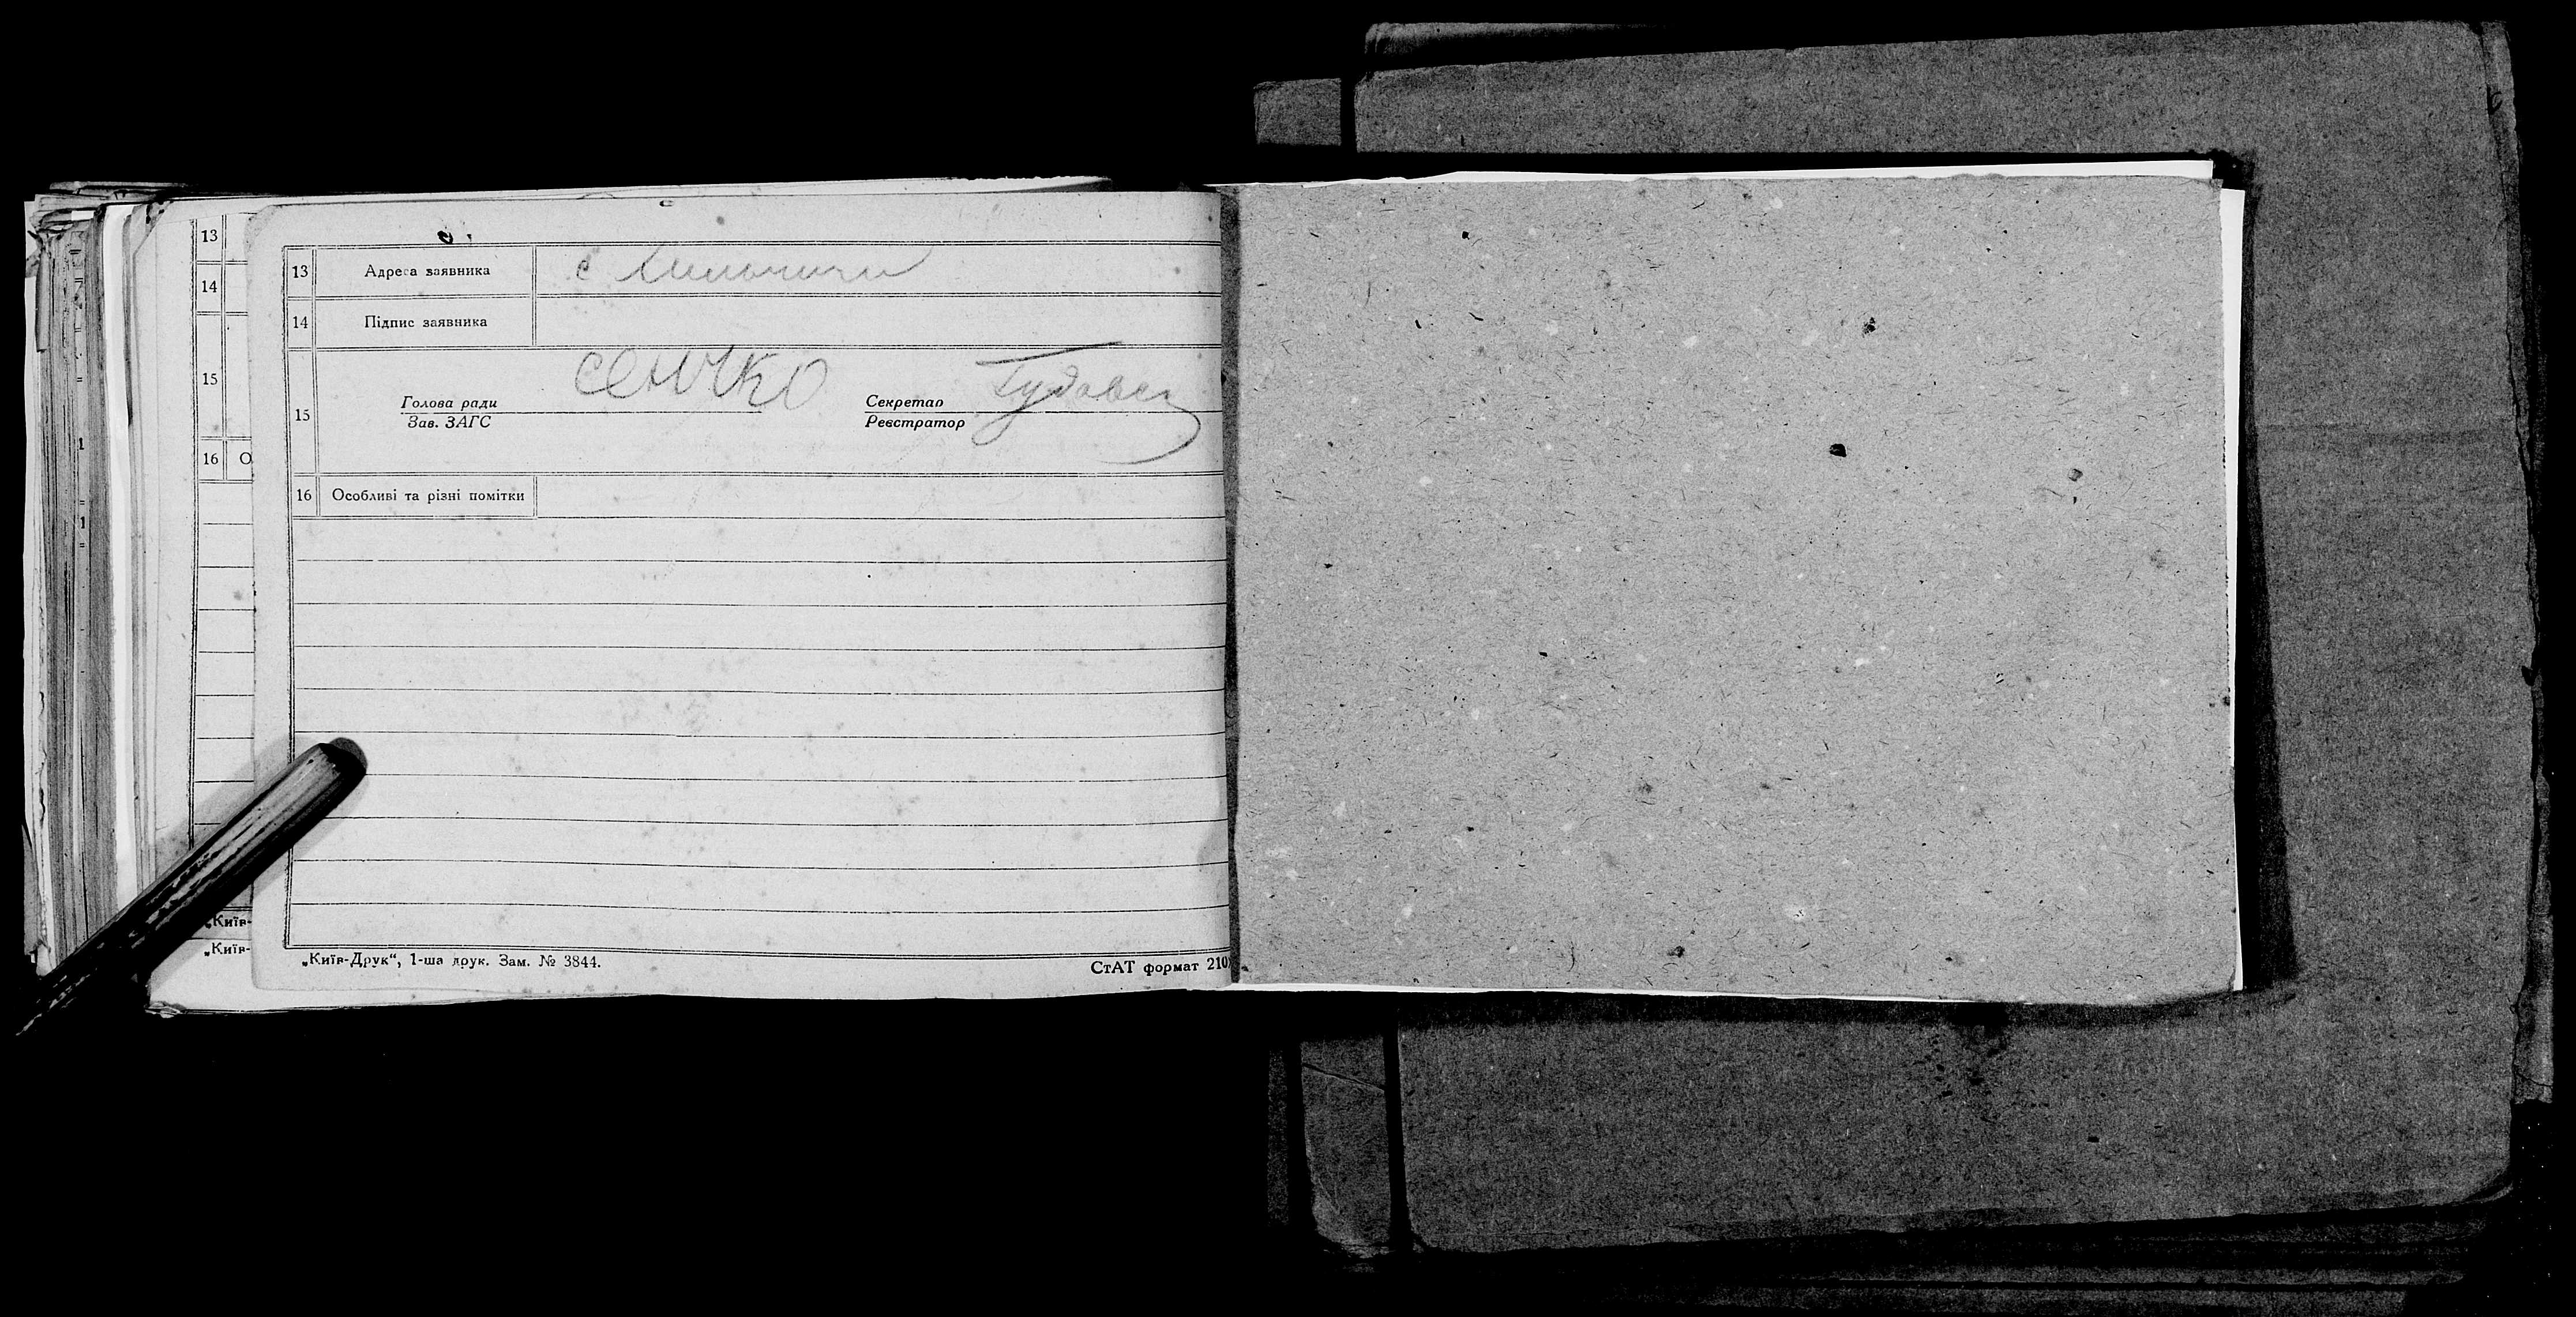 13
14
15
16 О
„Київ-
„Київ-
13 Адреса заявника с
14 Підпис заявника
15 Голова ради
Зав. ЗАГС
СЕНЧКО
Секретар
Реєстратор
16 Особливі та різні помітки
„Київ-Друк“, 1-ша друк. Зам. № 3844.
СтАТ формат 210